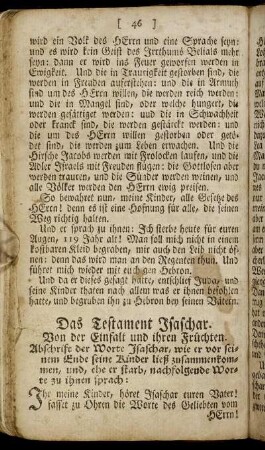 [ 46 ]
wird ein Volk des HErrn und eine Sprache seyn:
und es wird kein Geist des Irrthums Belials mehr
seyn: dann er wird ins Feuer geworfen werden in
Ewigkeit. Und die in Traurigkeit gestorben sind, die
werden in Freuden auferstehen: und die in Armuth
sind um des HErrn willen, die werden reich werden:
und die in Mangel sind, oder welche hungert, die
werden gesättiget werden: und die in Schwachheit
oder kranck sind, die werden gestärckt werden: und
die um des HErrn willen gestorben oder getöd-
det sind, die werden zum Leben erwachen. Und die
Hirsche Jacobs werden mit Frolocken laufen, und die
Adler Israels mit Freuden fliegen: die Gottlosen aber
werden trauren, und die Sünder werden weinen, und
alle Völker werden den HErrn ewig preisen.
So bewahret nun, meine Kinder, alle Gesetze des
HErrn! denn es ist eine Hofnung für alle, die seinen
Weg richtig halten.
Und er sprach zu ihnen: Ich sterbe heute für euren
Augen, 119 Jahr alt! Man soll mich nicht in einem
kostbaren Kleid begraben, mir auch den Leib nicht öf-
nen: denn das wird man an den Regenten thun. Und
führet mich wieder mit euch gen Hebron.
Und da er dieses gesagt hatte, entschlief Juda, und
seine Kinder thaten nach allem was er ihnen befohlen
hatte, und begruben ihn zu Hebron bey seinen Vätern.
Das Testament Isaschar.
Von der Einfalt und ihren Früchten.
Abschrift der Worte Isaschar, wie er vor sei-
nem Ende seine Kinder ließ zusammenkom-
men, und, ehe er starb, nachfolgende Wor-
te zu ihnen sprach:
Ihr meine Kinder, höret Isaschar euren Vater!
fasset zu Ohren die Worte des Geliebten vom
HErrn!